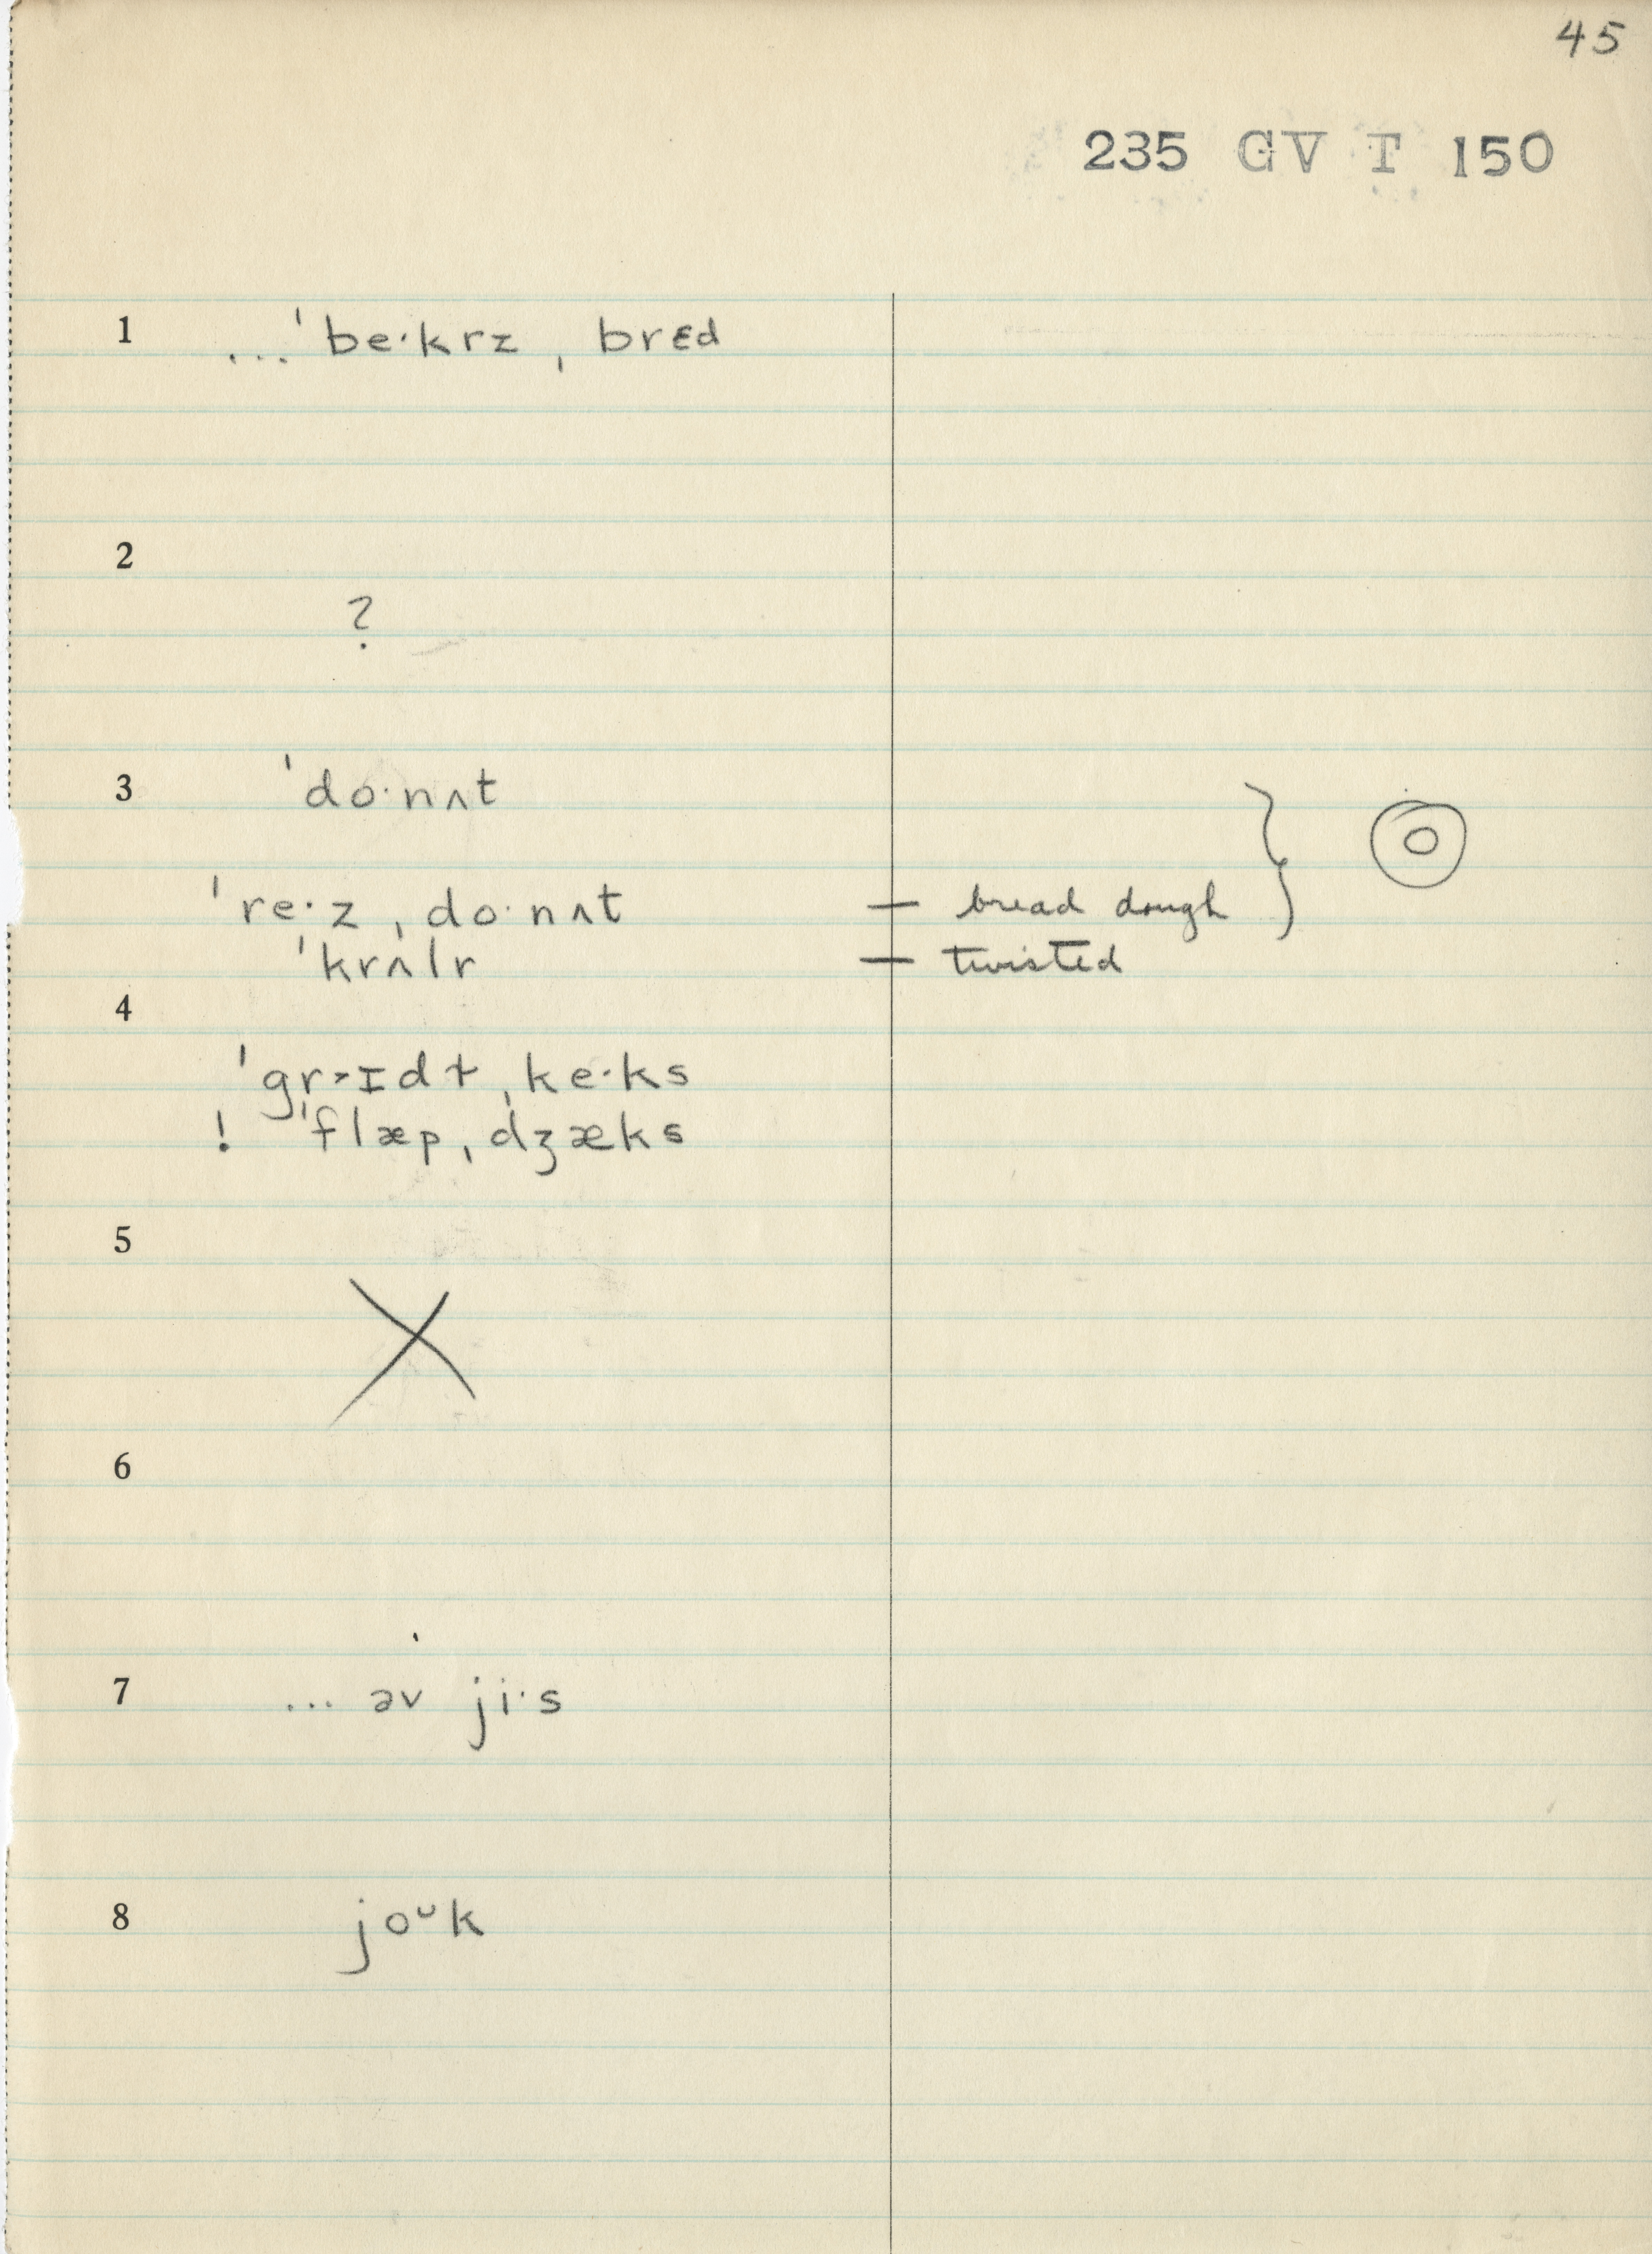 45
235 GV T 150
1 ...ˈbe·krz ˌbrɛd
2
?
3 ˈdo·nʌt
ˈre·z ˌdo·nʌt — bread dough }
ˈkrʌlr — twisted
4
ˈgr˃ɪdɫ ˌke·ks
! ˈflæp ˌdʒæks
5
X
6
7 ... əv ji·s
8 joᴗk